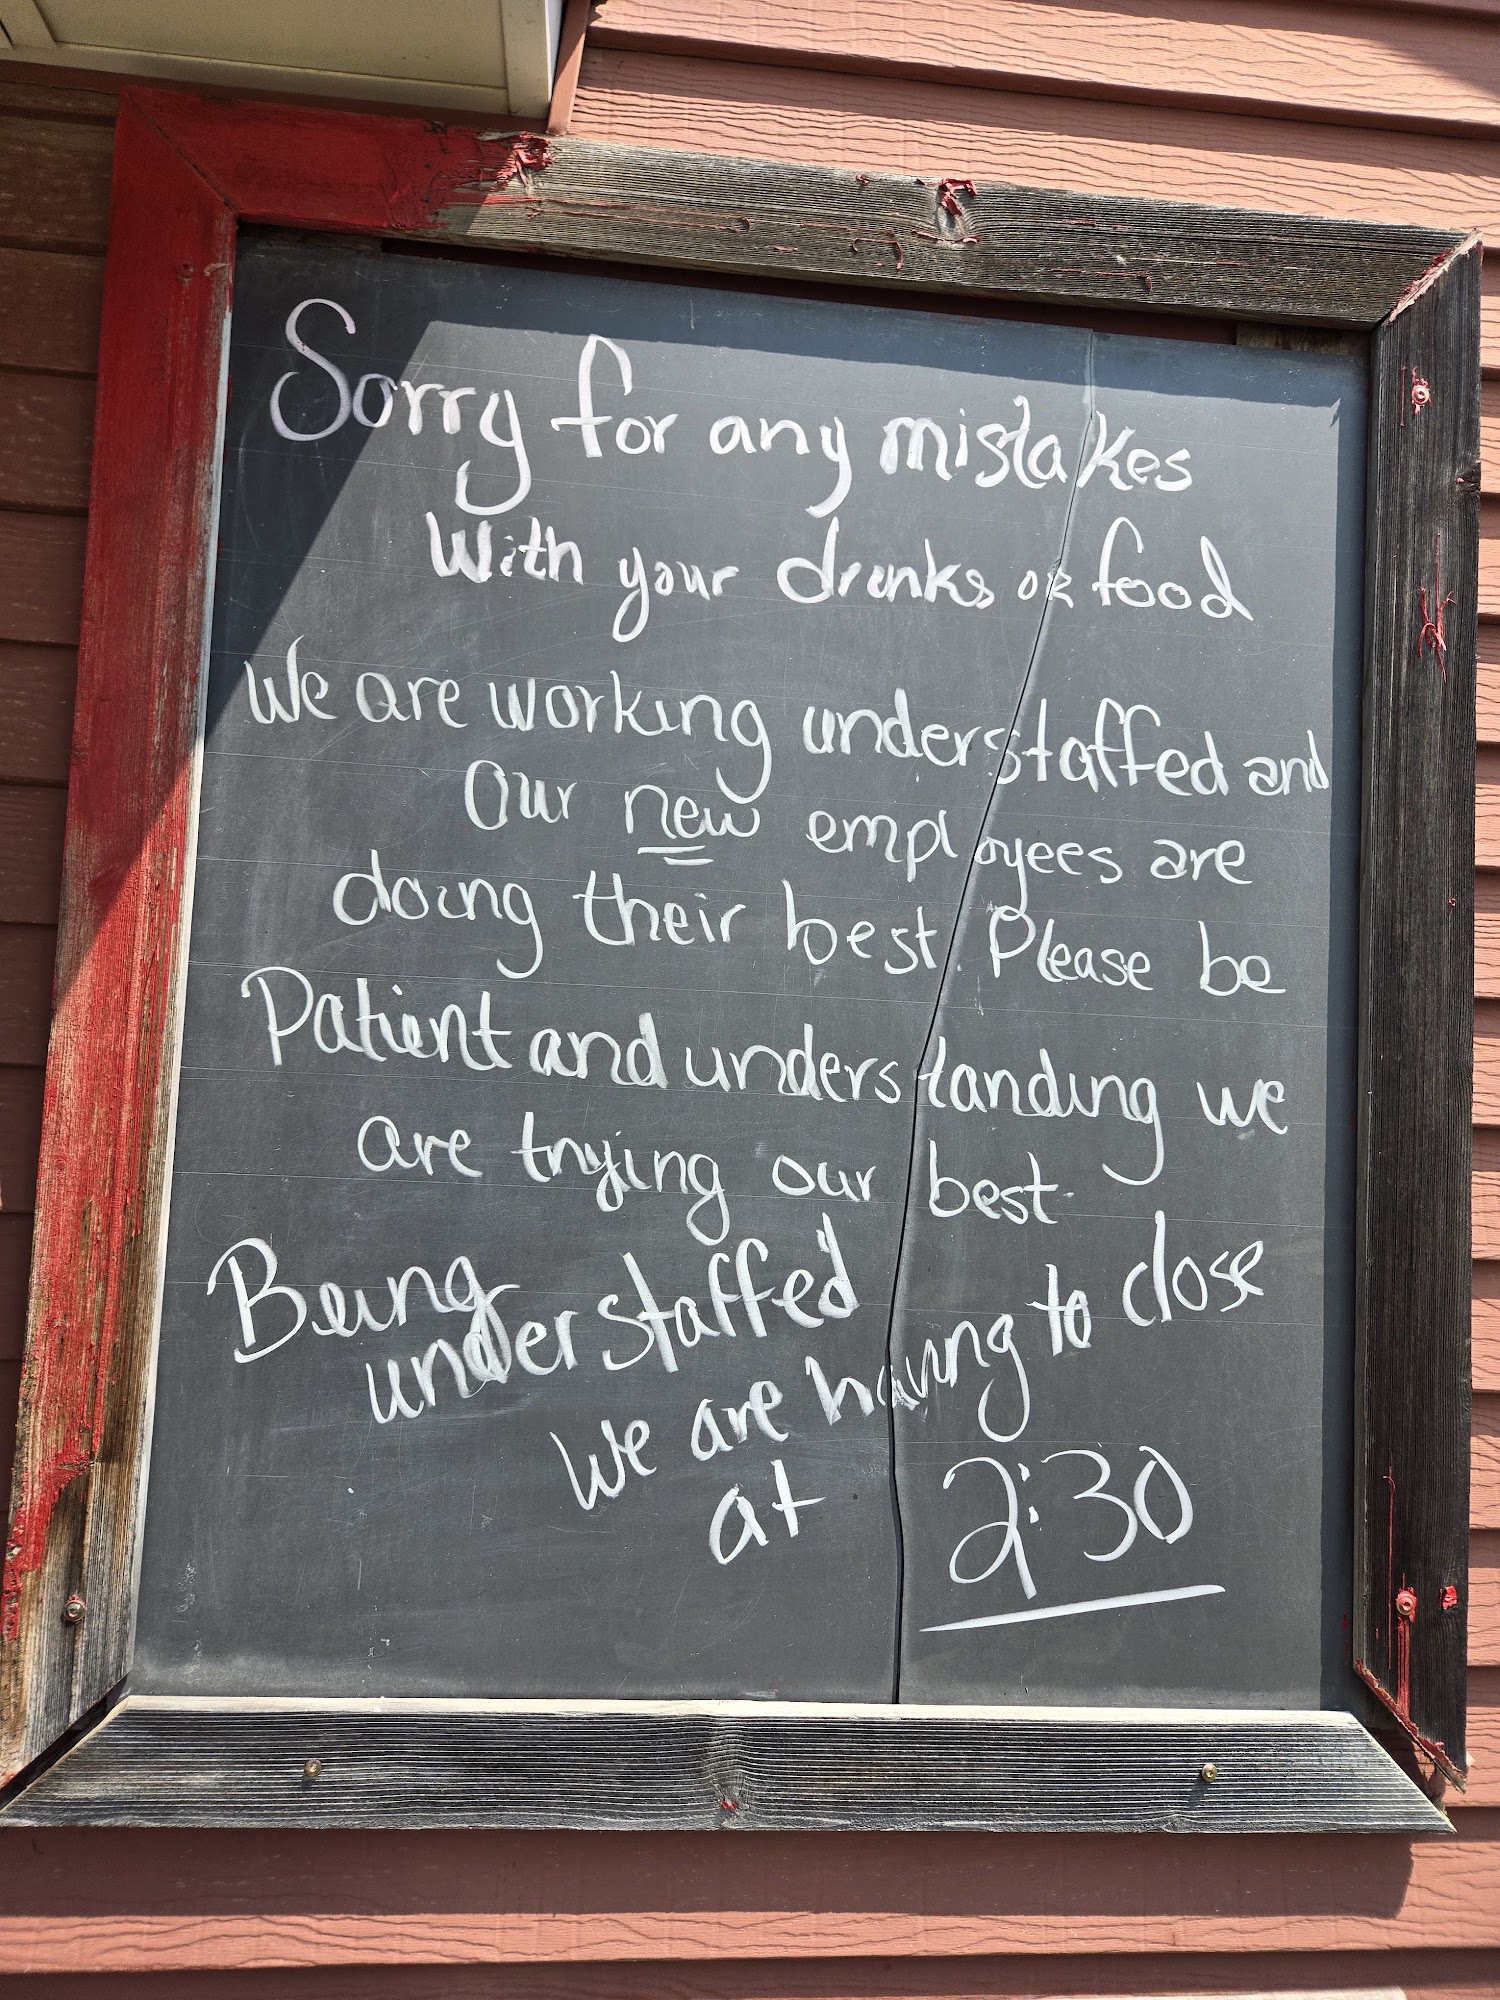 Sorry for any mistakes
With your drinks or food
We are working understaffed and
Our new employees are
doing their best. Please be
Patient and understanding we
are trying our best.
Being
understaffed
we are having to close
at 2:30